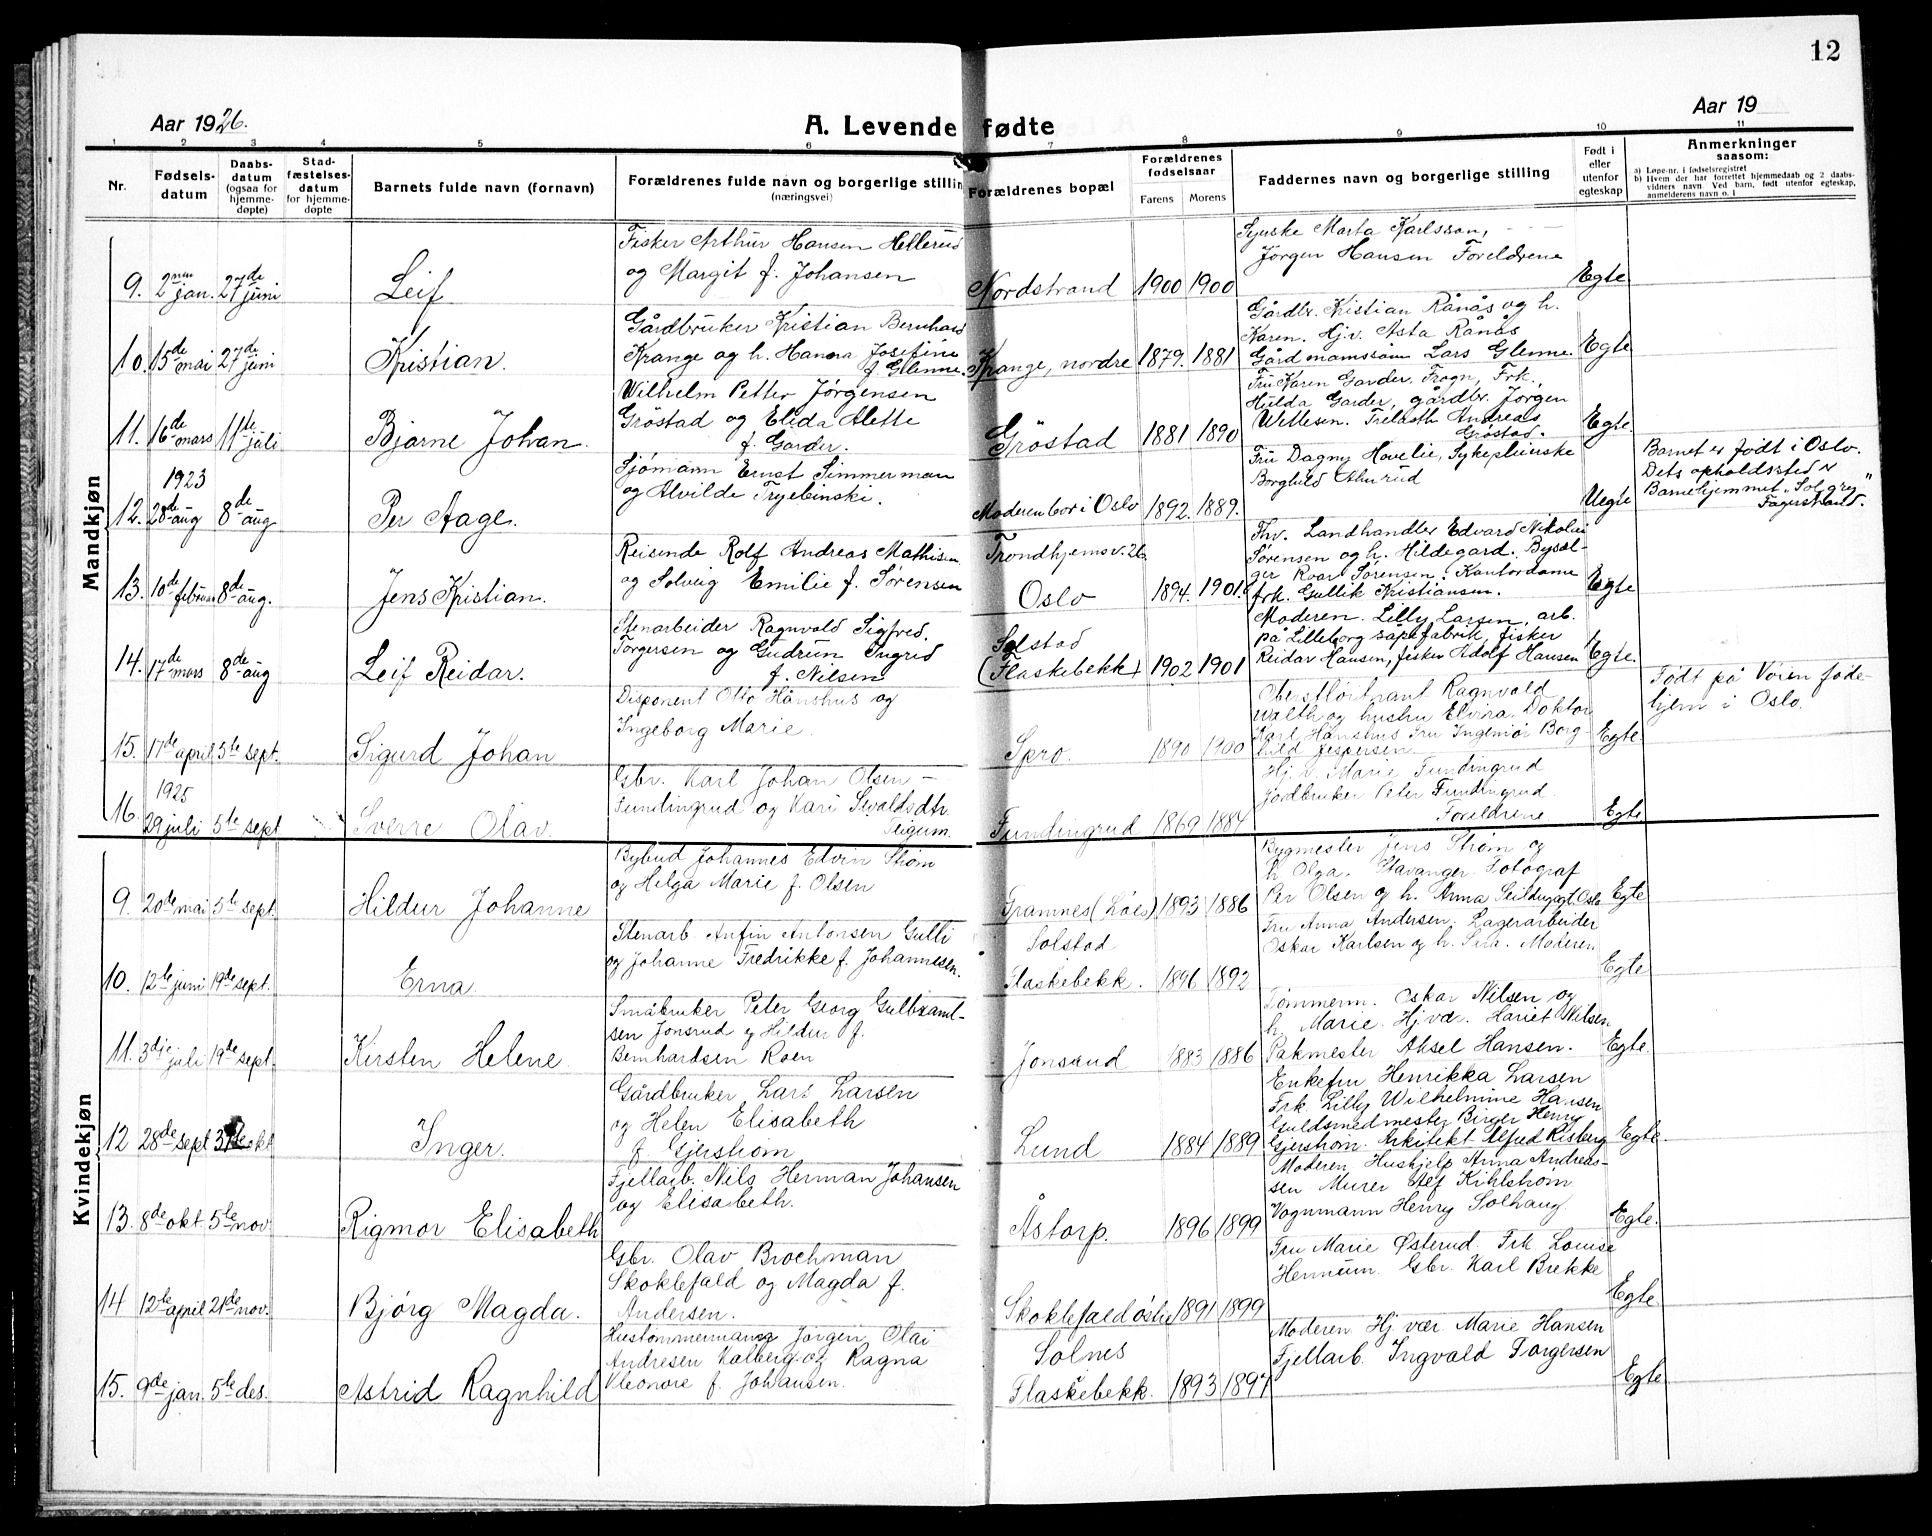 12
Aar 1926.
A. Levende fødte
Aar 19
1 2 3 4 5 6 7 8 9 10 11
Nr.
Fødselsdatum
Daabsdatum (ogsaa for hjemmedøpte)
Stadfæstelsesdatum for hjemmedøpte
Barnets fulde navn (fornavn)
Forældrenes fulde navn og borgerlige stilling (næringsvei)
Forældrenes bopæl
Forældrenes fødselsaar
Farens Morens
Faddernes navn og borgerlige stilling
Født i eller utenfor egteskap
Anmerkninger saasom:
a) Løpe-nr. i fødselsregistret
b) Hvem der har forrettet hjemmedaab og 2 daabsvidners navn. Ved barn, født utenfor egteskap, anmelderens navn o. l
Mandkjøn
9. 2nen jan. 27de juni
Leif
Fisker Arthur Hansen Hellerud
og Margit f. Johansen
Nordstrand 1900 1900
Syerske Marta Karlsson,
Jørgen Hansen Foreldrene
Egte
10. 15de mai 27de juni
Kristian.
Gårdbruker Kristian Bernhard
Krange og h. Hanna Josefine
f. Glenne.
Krange, nordre 1879. 1881
Gårdbr. Kristian Rånås og h.
Karen. Hj.v. Asta Rånås
Gårdmannssøn Lars Glenne.
Egte
11. 16de mars 11te juli
Bjarne Johan.
Wilhelm Petter Jørgensen
Gröstad og Elida Alette
f. Garder.
Gröstad 1881 1890
Fru Karen Garder. Frogn, Frk.
Hulda Garder, gårdbr. Jörgen
Wettesen. Trelasth. Andreas
Gröstad.
Egte
1923
12. 28de aug 8de aug
Per Aage.
Sjömann Ernst Simmerman
og Alvilde Tryebinski.
Moderen bor i Oslo 1892. 1889.
Fru Dagny Hovelie, Sykepleierske
Borghild Ahurud
Uegte
Barnet er født i Oslo.
Dets opholdssted er
Barnehjemmet "Solgry"
Fagerstrand.
13. 10de februar 8de aug.
Jens Kristian.
Reisende Rolf Andreas Mathisen
og Solveig Emilie f. Sørensen
Trondhjemsv. 26
Oslo 1894. 1901.
Fhv. Landhandler Edvard Nikolai
Sørensen og h. Hildegard. Bysæl-
ger Roar Sørensen. Kontordame
frk. Gullik Kristiansen.
Egte
14. 17de mars 8de aug
Leif Reidar.
Stenarbeider Ragnvald Sigfred.
Torgersen og Gudrun Ingrid
f. Nilsen
Solstad
(Flaskebekk) 1902 1901
Moderen. Lilly Larsen, arb.
på Lilleborg såpefabrik, fisker
Reidar Hansen, fisker Adolf Hansen
Egte.
15. 17de april 5te sept.
Sigurd Johan
Disponent Otto Hånshus og
Ingeborg Marie.
Spro. 1890 1900
Oberstløitnant Ragnvald
Walth og hustru Elvira. Doktor
Karl Hånshus Fru Ingemor Borg-
hild Jespersen.
Egte.
Født på Vøien føde-
hjem i Oslo.
1925
16. 29 juli 5te sept
Sverre Olav.
Gbr. Karl Johan Olsen -
Fundingrud og Kari Sivaldsdtr
Teigum.
Fundingrud 1869 1884
Hj. v. Marie Fundingrud
Jordbruker Peter Fundingrud.
Foreldrene
Egte
Kvindekjøn
9. 20de mai 5te sept.
Hildur Johanne
Bybud Johannes Edvin Strøm
og Helga Marie f. Olsen
Gramnes (Löes) 1893 1886
Bygmester Jens Strøm og
h. Olga. Stavanger. Fotograf
Per Olsen og h. Anna Oslo
Egte
10. 12te juni 19de sept.
Erna.
Stenarb. Anfin Antonsen Gulli
og Johanne Fredrikke f. Johannesen.
Solstad
Flaskebekk. 1896 1892
Fru Anna Andersen. Lagerarbeider
Oskar Karlsen og h. Moderen
Egte
11. 3dje juli 19de sept.
Kirsten Helene.
Småbruker Peter Georg Gulbrand-
sen Jonsrud og Hildur f.
Bernhardsen Roen
Jonsrud 1883 1886
Tömmerm. Oskar Nilsen og
h. Marie. Hj.væ. Hariet Nilsen
Pakmester Aksel Hansen.
Egte.
12 28de sept 31te okt
Inger.
Gårdbruker Lars Larsen
og Helen Elisabeth
f. Gjerstrøm
Lund 1884 1889
Enkefru Henrikka Larsen
Frk Lilly Wilhelmine Hansen
Guldsmedmester Birger Henry
Gjerstrøm. Arkitekt Alfred Risberg
Egte.
13. 8de okt. 5te nov.
Rigmor Elisabeth
Fjellarb. Nils Herman Johansen
og Elisabeth.
Åstorp. 1896 1899
Moderen. Hushjelp Anna Andreas-
sen Murer Alf Kihlstrøm
Vognmann Henry Solhaug
Egte.
14 12te april 21de nov.
Bjørg Magda.
Gbr. Olav Brochman
Skoklefald og Magda f.
Andersen.
Skoklefald östre 1891 1899
Fru Marie Østerud Frk Louise
Hennum. Gbr. Karl Brekke
Egte.
15. 9de jan. 5te des.
Astrid Ragnhild
Hustømmermann Jørgen Olai
Andresen Kalberg og Ragna
Eleonore f. Johansen.
Solnes
Flaskebekk. 1893 1897
Moderen Hj vær. Marie Hansen
Fjellarb. Ingvald Torgersen
Egte